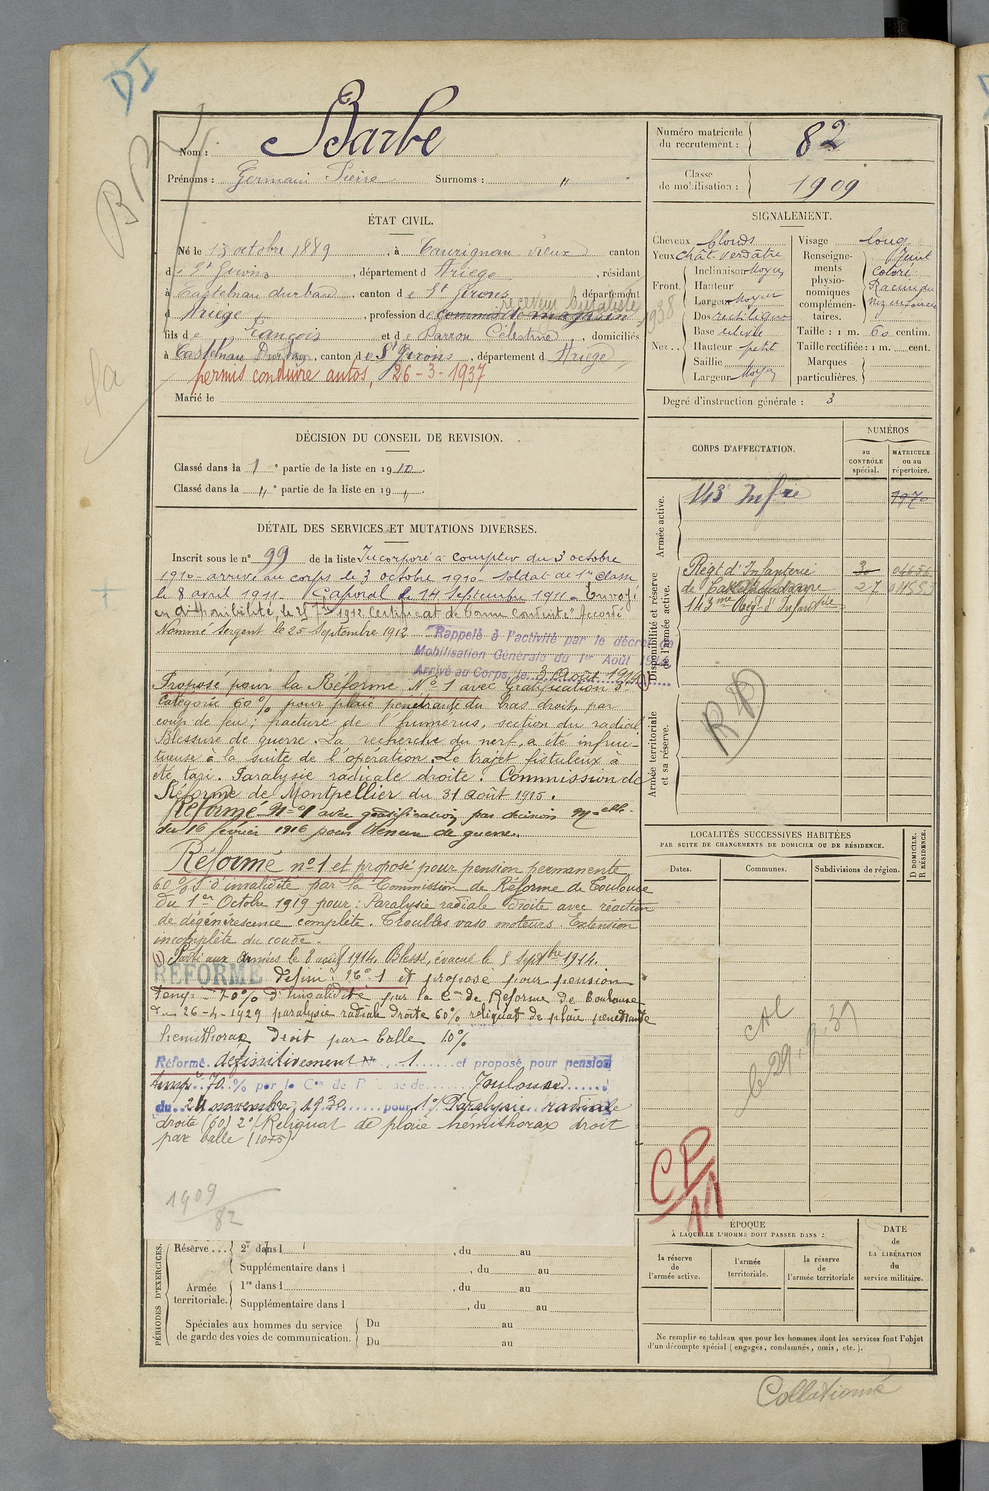 DI
BM
Nom : Barbe
Prénoms : Germain Pierre Surnoms : "
Numéro matricule du recrutement : 82
Classe de mobilisation : 1909
ÉTAT CIVIL.
Né le 13 octobre 1889, à Taurignan vieux canton
de St Girons, département d Ariège, résidant
à Castelnau durban, canton de St Girons, département
receveur buraliste
d Ariège, profession de commis de magasin
fils de François et de Parron Célestine, domiciliés
à Castelnau Durban, canton de St Girons, département d Ariège
permis conduire autos, 26-3-1937
Marié le
SIGNALEMENT.
Cheveux blonds
Yeux chât. verdâtre
Front. Inclinaison Moyen
Hauteur
Largeur Moyen
Nez Dos rectiligne
Base relevée
Hauteur petit
Saillie
Largeur Moyen
Visage long
Renseignements physionomiques complémentaires. Teint coloré.
Taille : 1 m. 60 centim.
Taille rectifiée : 1 m. cent.
Marques particulières.
Degré d'instruction générale : 3
DÉCISION DU CONSEIL DE REVISION.
Classé dans la 1e partie de la liste en 1910.
Classé dans la " e partie de la liste en 19 "
DÉTAIL DES SERVICES ET MUTATIONS DIVERSES.
Inscrit sous le n° 99 de la liste Incorporé à compter du 3 octobre
1910 - arrivé au corps le 3 octobre 1910 - soldat de 1re classe
le 8 avril 1911. Caporal le 14 Septembre 1911 - Envoyé
en disponibilité, le 25 7bre 1912 Certificat de bonne conduite "Accordé"
Nommé Sergent le 25 Septembre 1912
Rappelé à l'activité par le décret de
Mobilisation Générale du 1er Août 1914
Arrivé au Corps le 3 Août 1914 (1)
Proposé pour la Réforme N° 1 avec Gratification 5e
Catégorie 60% pour plaie pénétrante du bras droit, par
coup de feu ; fracture de l'humérus, section du radial
Blessure de guerre. La recherche du nerf, a été infruc-
tueuse à la suite de l'opération. Le trajet fistuleux a
été tari. Paralysie radicale droite. Commission de
Réforme de Montpellier du 31 août 1915.
Réformé N° 1 avec gratification par décision Melle
du 16 février 1916 pour blessure de guerre.
Réformé n° 1 et proposé pour pension permanente
60% d'invalidité par la Commission de Réforme de Toulouse
du 1er Octobre 1919 pour : Paralysie radiale droite avec réaction
de dégénérescence complète. Troubles vaso moteurs. Extension
incomplète du coude.
(1) Parti aux Armées le 8 août 1914. Blessé, évacué le 8 septbre 1914.
RÉFORMÉ défini. N° 1 et proposé pour pension
temp. 70% d'invalidité par la Con de Réforme de Toulouse
du 26-4-1929 paralysie radiale droite 60% reliquat de plaie pénétrante
hemithorax droit par balle 10%
Réformé définitivement N° 1 et proposé pour pension
temp. 70 % par la Con de Réforme de Toulouse
du 24 novembre 1930 pour 1°/ Paralysie radiale
droite (60) 2°/ Reliquat de plaie hemithorax droit
par balle (10+5)
1909
82
CORPS D'AFFECTATION.
NUMÉROS
au CONTRÔLE spécial.
MATRICULE ou au répertoire.
Armée active.
143e Infrie 1970
Disponibilité et réserve de l'armée active.
Régt d'Infanterie
de Castelnaudary
143me Rég. d'Infanterie
Armée territoriale et sa réserve.
LOCALITÉS SUCCESSIVES HABITÉES
PAR SUITE DE CHANGEMENTS DE DOMICILE OU DE RÉSIDENCE.
Dates. Communes. Subdivisions de région. D DOMICILE. R RÉSIDENCE.
CP
11
PÉRIODES D'EXERCICES.
Réserve... 2e dans l , du au
Supplémentaire dans l , du au
Armée territoriale. 1re dans l , du au
Supplémentaire dans l , du au
Spéciales aux hommes du service de garde des voies de communication. Du au
Du au
ÉPOQUE
À LAQUELLE L'HOMME DOIT PASSER DANS :
la réserve de l'armée active.
l'armée territoriale.
la réserve de l'armée territoriale
DATE de LA LIBÉRATION du service militaire.
Ne remplir ce tableau que pour les hommes dont les services font l'objet
d'un décompte spécial (engagés, condamnés, omis, etc.).
Collationné